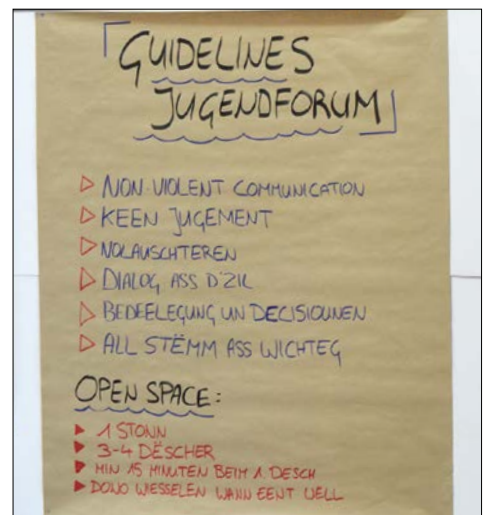 GUIDELINES
JUGENDFORUM
NON-VIOLENT COMMUNICATION
KEEN JUGEMENT
NOLAUSCHTEREN
DIALOG ASS D'ZIL
BEDEELEGUNG UN DECISIOUNEN
ALL STËMM ASS WICHTEG
OPEN SPACE:
1 STONN
3-4 DËSCHER
MIN 15 MINUTEN BEIM 1. DESCH
DONO WIESSELEN WANN EENT WELL